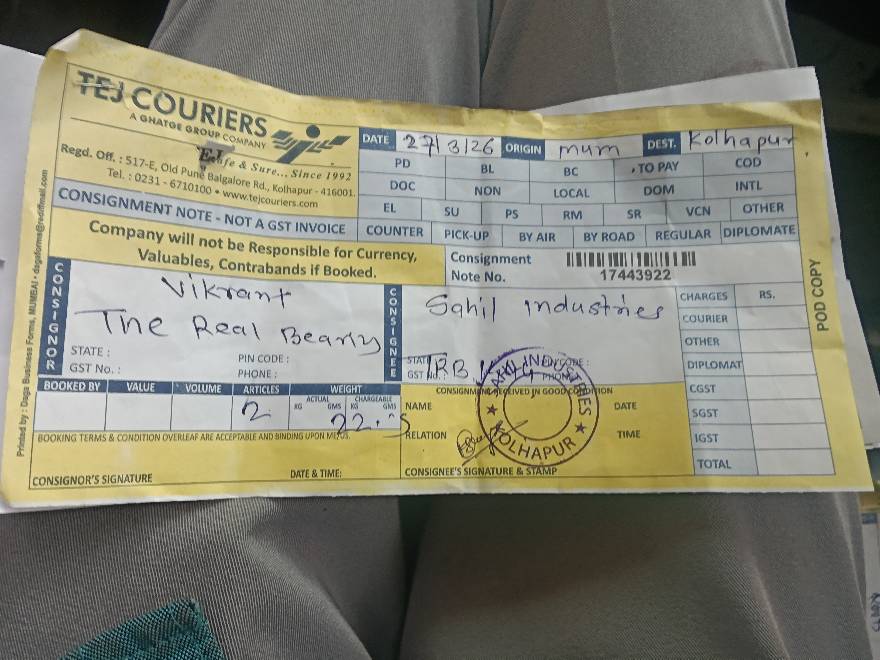 TEJ COURIERS
A GHATGE GROUP COMPANY
Safe & Sure... Since 1992
Regd. Off. : 517-E, Old Pune Balgalore Rd., Kolhapur - 416001.
Tel. : 0231 - 6710100 • www.tejcouriers.com
CONSIGNMENT NOTE - NOT A GST INVOICE
DATE 27/3/26 ORIGIN mum DEST. Kolhapur
PD BL BC TO PAY COD
DOC NON LOCAL DOM INTL
EL SU PS RM SR VCN OTHER
COUNTER PICK-UP BY AIR BY ROAD REGULAR DIPLOMATE
Company will not be Responsible for Currency,
Valuables, Contrabands if Booked.
Consignment
Note No. 17443922
CONSIGNOR
Vikrant
The Real
STATE : PIN CODE :
GST No. : PHONE :
CONSIGNEE
Sahil industries
TRB
CHARGES RS.
COURIER
OTHER
DIPLOMAT
CGST
SGST
IGST
TOTAL
BOOKED BY VALUE VOLUME ARTICLES WEIGHT
ACTUAL CHARGEABLE
KG GMS KG GMS
2
BOOKING TERMS & CONDITION OVERLEAF ARE ACCEPTABLE AND BINDING UPON ME/US.
CONSIGNOR'S SIGNATURE DATE & TIME:
CONSIGNMENT RECEIVED IN GOOD CONDITION
NAME DATE
RELATION TIME
CONSIGNEE'S SIGNATURE & STAMP
SAHIL INDUSTRIES
★ KOLHAPUR ★
POD COPY
Printed by : Daga Business Forms, MUMBAI • dagaforms@rediffmail.com